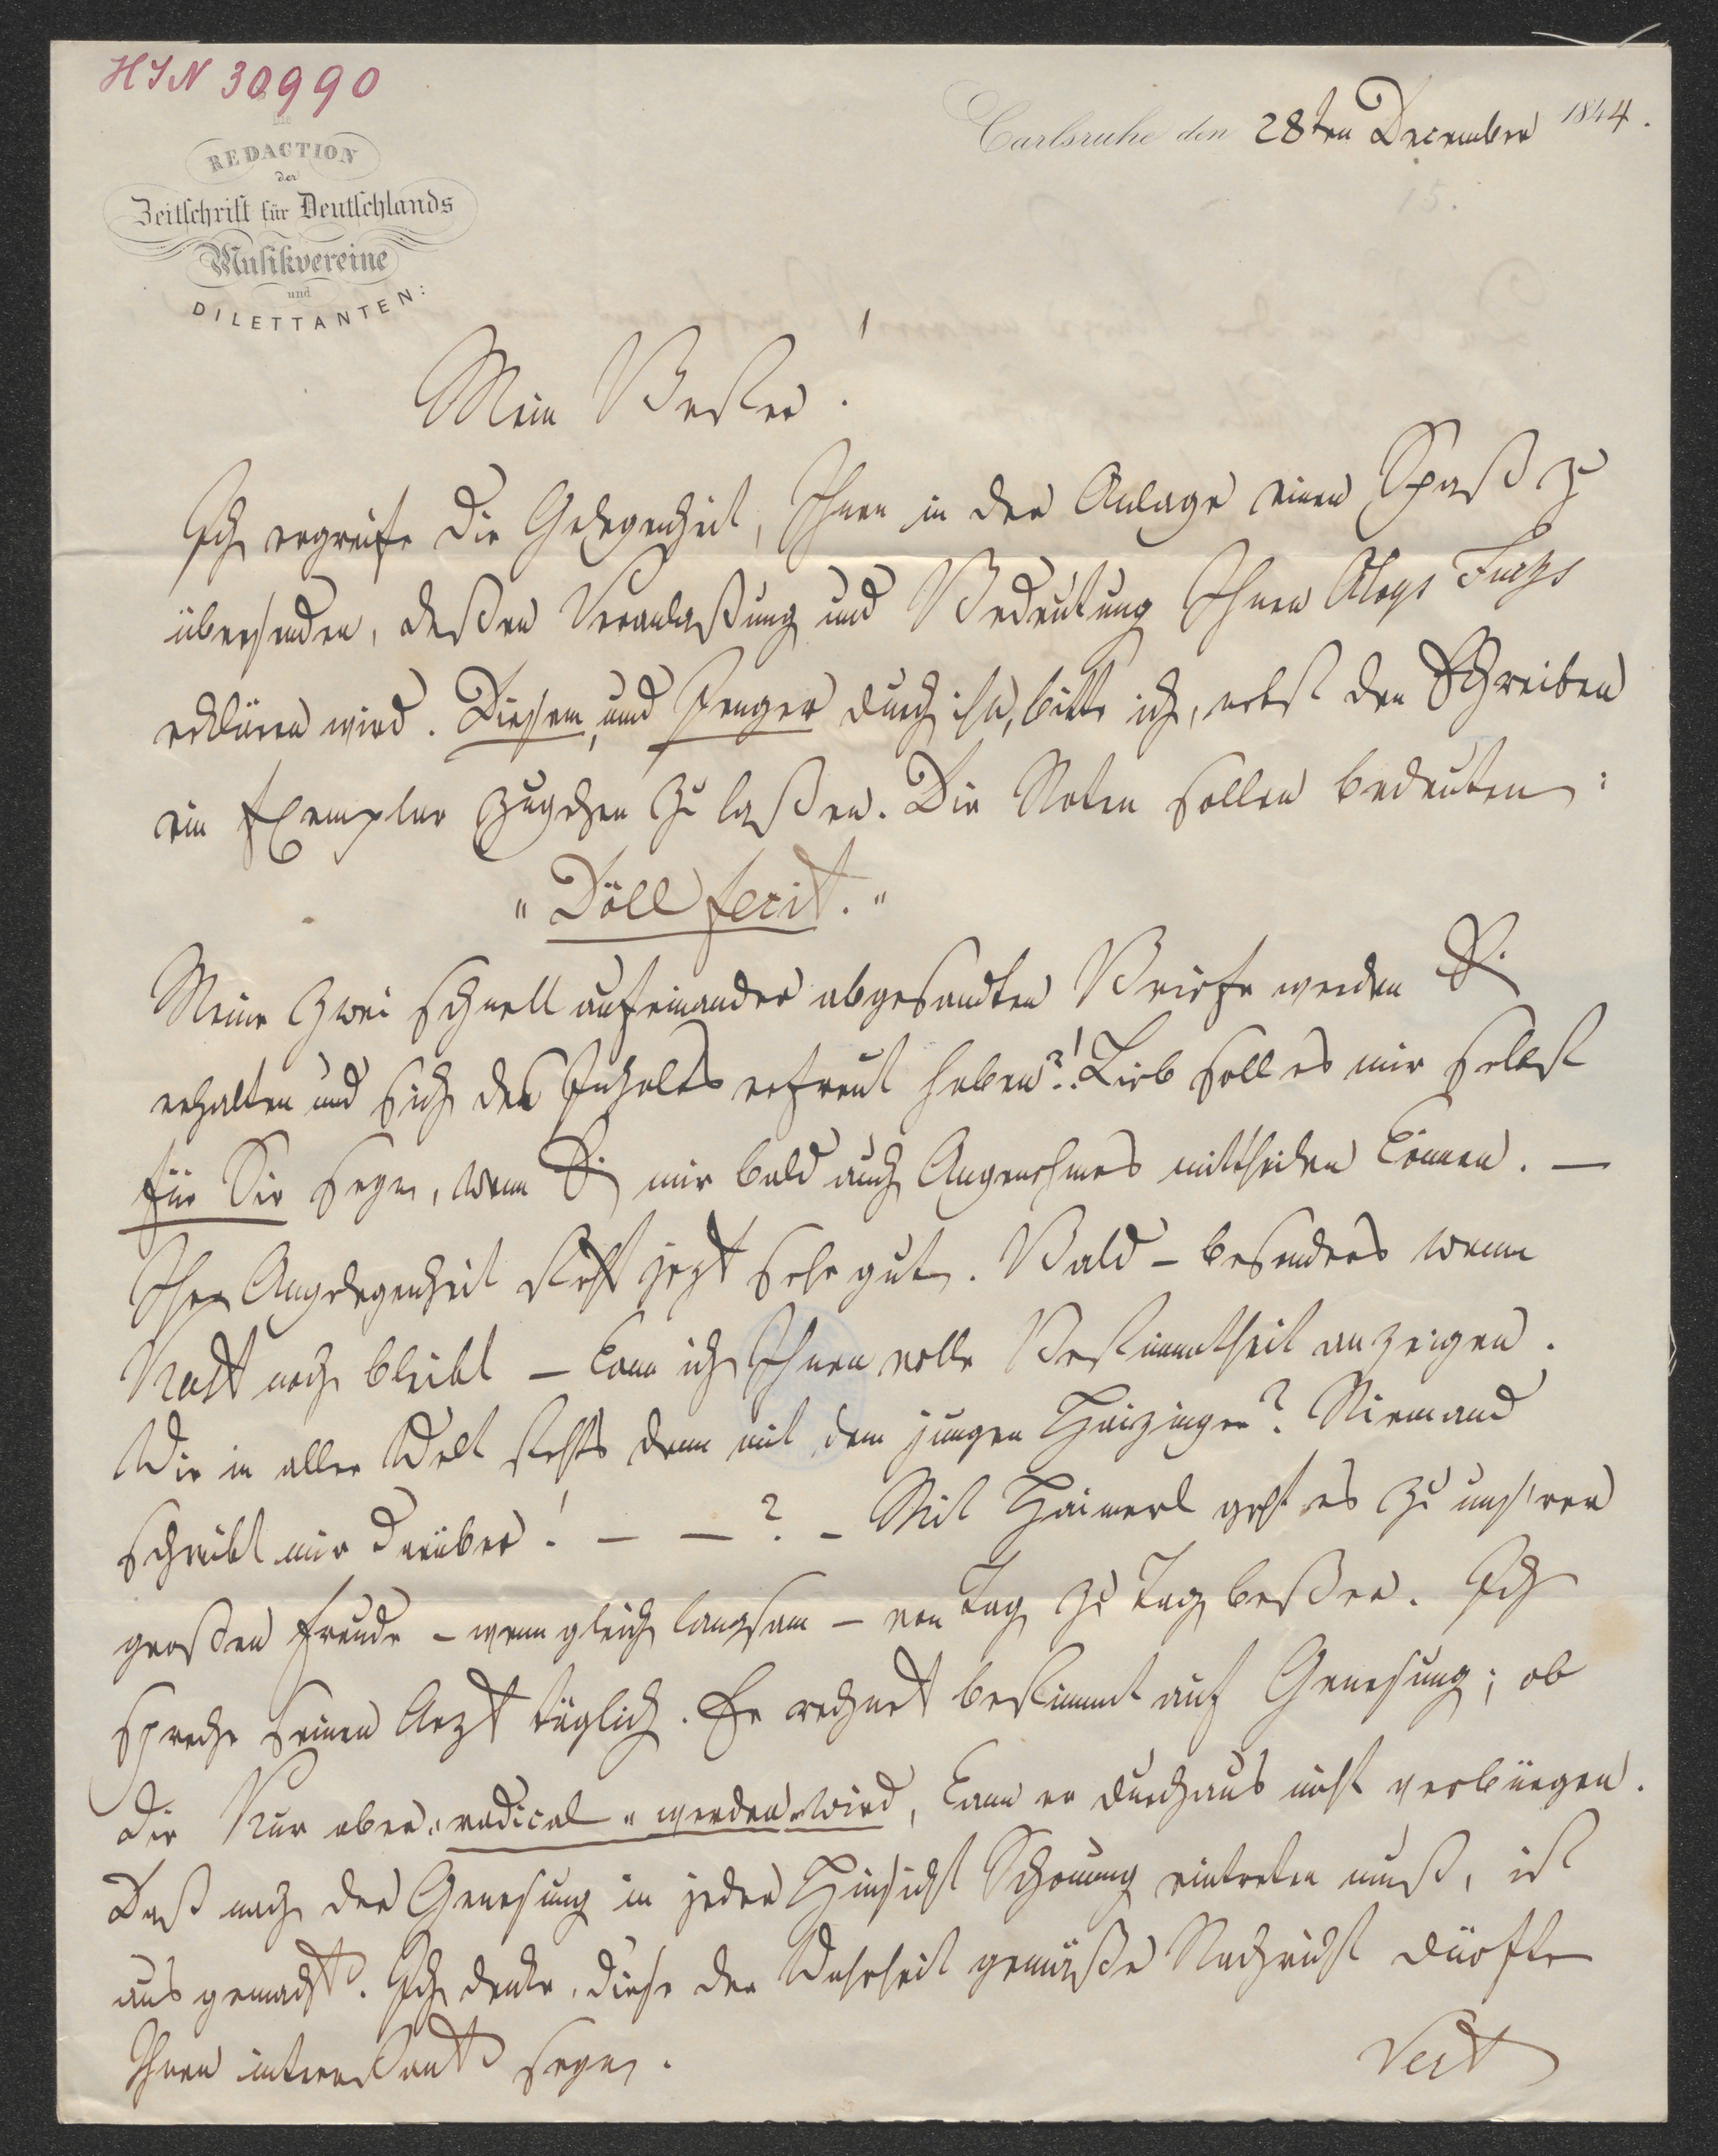 HIN 30990
Die
REDACTION
der
Zeitschrift für Deutschlands
Musikvereine
und
DILETTANTEN:
Carlsruhe den 28ten December 1844.
15.
Mein Bester!
Ich ergreife die Gelegenheit, Ihnen in der Anlage einen Spaß zu
übersenden, deßen Veranlaßung und Bedeutung Ihnen Aloys Fuchs
erklären wird. Diesem, und Jenger durch ihn, bitte ich, nebst den Schreiben
ein Exemplar zugehen zu laßen. Die Noten sollen bedeuten:
"Döll fecit."
Meine zwei schnell aufeinander abgesandten Briefe werden Sie
erhalten und sich des Inhaltes erfreut haben?! Lieb soll es mir selbst
für Sie seyn, wenn Sie mir bald auch Angenehmes mittheilen können. —
Ihre Angelegenheit steht jezt sehr gut. Bald – besonders wenn
noch bleibt – kann ich Ihnen volle Bestimmtheit anzeigen.
Wie in aller Welt stehts denn mit dem jungen Haizinger? Niemand
schreibt mir darüber! – — ? – Mit Haimerl geht es zu unsrer
großen Freude – wenn gleich langsam – von Tag zu Tag beßer. Ich
spreche seinen Arzt täglich. Er rechnet bestimmt auf Genesung; ob
die Kur aber "radical" werden wird, kann er durchaus nicht verbürgen.
Daß nach der Genesung in jeder Hinsicht Schonung eintreten muß, ist
ausgemacht. Ich denke, diese der Wahrheit gemäße Nachricht dürfte
Ihnen interessant seyn.
Vert